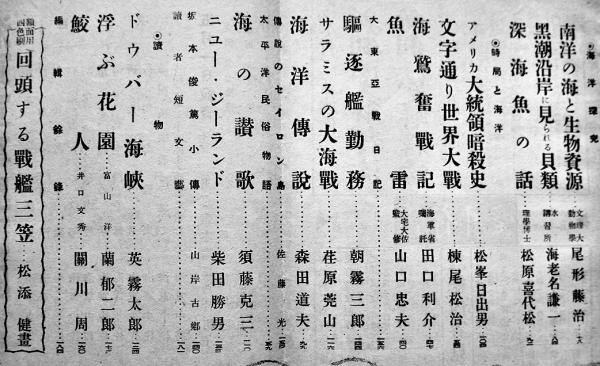 ◉海洋探究
南洋の海と生物資源 文理大動物學 尾形藤治
黒潮沿岸に見られる貝類 水講習所 海老名謙一
深海魚の話 理學博士 松原喜代松
◉時局と海洋
アメリカ大統領暗殺史 松峯日出男
文字通り世界大戰 棟尾松治
海鷲奮戰記 海軍省囑託 田口利介
魚雷 大宅大佐監修 山口忠夫
大東亞戰日記
驅逐艦勤務 朝霧三郎
サラミスの大海戰 荏原莞山
海洋傳說 森田道夫
傳說のセイロン島 佐藤光
太平洋民俗物語
海の讃歌 須藤克三
ニュー・ジーランド 柴田勝男
坂本俊篤小傳 山岸古鄕
讀者短文藝
◉讀物
ドゥバー海峽 英霧太郎
浮ぶ花園 富山洋 蘭郁二郎
鮫人 井口文秀 關川周
編輯餘錄
額面用四色刷 回頭する戰艦三笠 松添健畫